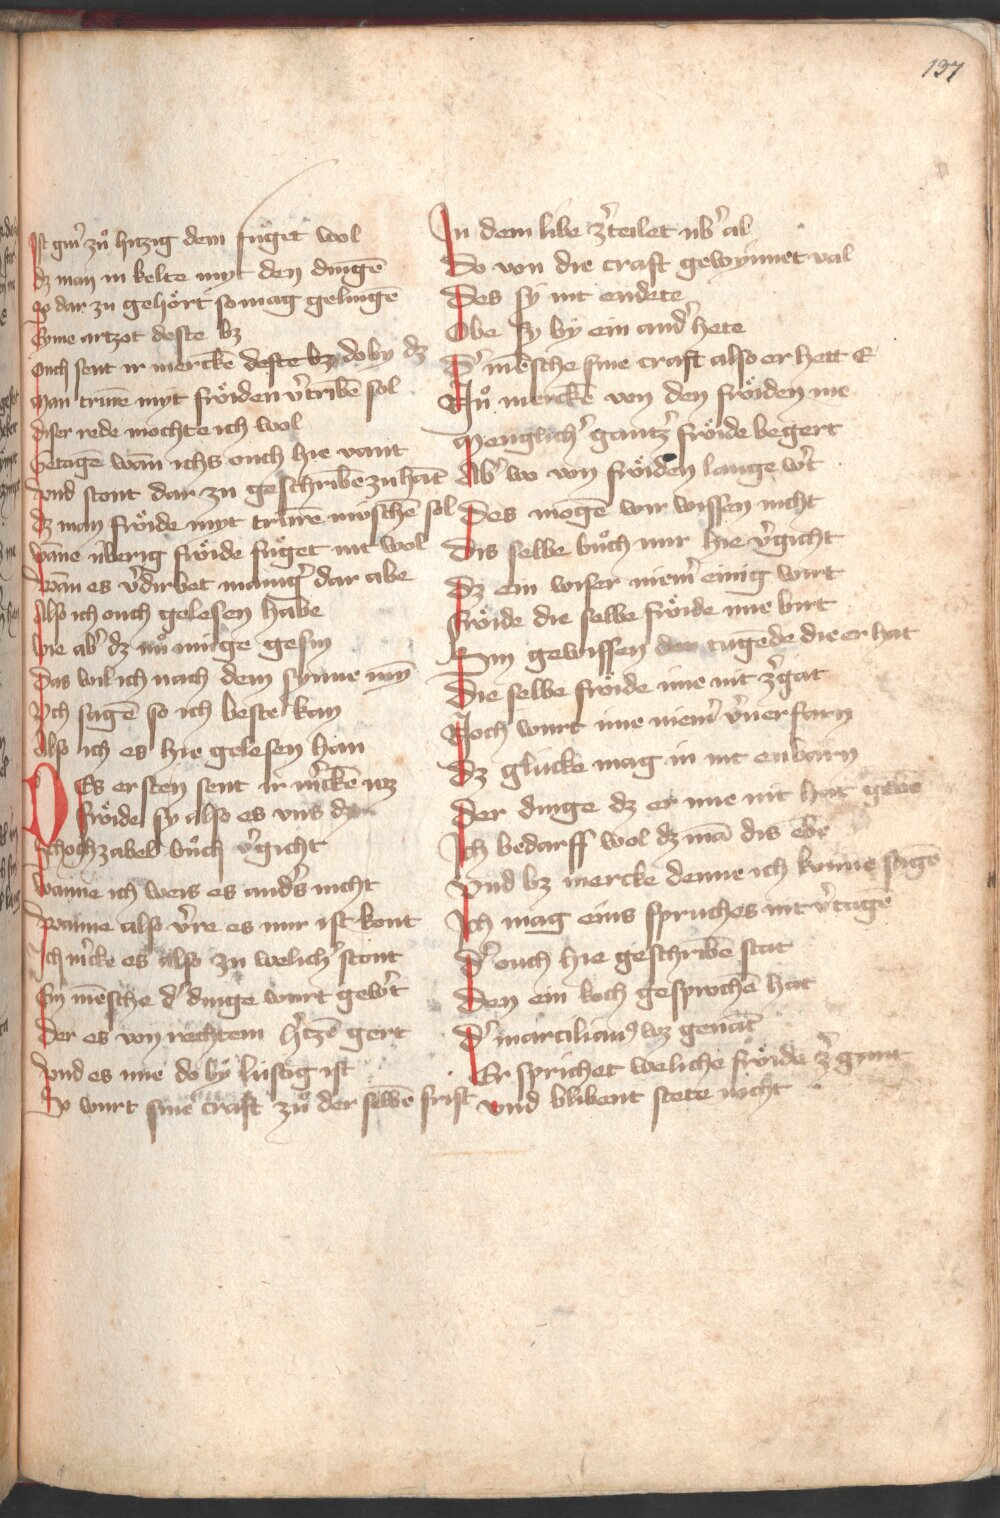 137
Ist gin̄ zuͦ hitzig dem fuͤget wol
dz man in kelte myt den dingē
So dar zu gehoͤrt so mag gelingē
Syme artzot deste bz
Ouch sent ir merckē deste bz do by dz
Man trurē myt froͤiden v̓tribē sol
Diser rede mochte ich wol
Betagē wān ichs ouch hie vant
Vnd stont dar zu geschribē zu hāt
Dz man froͤide myt trurē muschē sol
Wāne uͤberig froͤide fuͤget nit wol
Wān es v̓dirbet manig̓ dar abe
Also ich ouch gelesen habe
Wie ab̓ dz muͦ muge gesin
Das wil ich nach dem synne myn̄
Vch sagē so ich beste kan
Also ich es hie gelesen han
DEs ersten sent ir m̓ckē uz
froͤide sy also es vns dz
Schochzabel buͦch v̓gicht
Wanne ich weis es and̓s nicht
Wanne also v̓re es mir ist kont
Ich m̓cke es also zu welich̓ stont
Ein mēsche d̓ dinge wurt gew̓t
Der es von rechtem h̓tzē gert
Vnd es ime do by lustig ist
So wurt sine craft zuͦ der selbē frist
In dem libe z̓teilet ub̓ al
Do von die craft gewynnet val
Des sy nit endete
Obe sy by ein and̓ hete
D̓ mēsche sine craft also er hett E
Nuͦ merckē von den froͤiden me
Menglich̓ gantz̓ froͤide begert
Ab̓ wo von froͤiden lange w̓t
Des mogē wir wissen nicht
Dis selbe buͦch mir hie v̓gicht
Dz ein wiser niem̓ einig wirt
Froͤide die selbe froͤide ime birt
Sin gewissen den tugēde die er hat
Die selbe froͤide ime nit z̓gat
Noch wurt ime niem̓ v̓uerfarn
Dz glucke mag in nit enbarn
Der dinge dz er ime nit hat gebē
Ich bedarff wol dz mā dis ebē
Vnd bz mercke denne ich konne sagē
Ich mag eins spruches nit v̓tagē
D̓ ouch hie geschribē stat
Den ein koch gesprochē hat
D̓ marcilianꝰ wz genāt
Er sprichet weliche froͤide z̓gant
Vnd blibent stete nicht